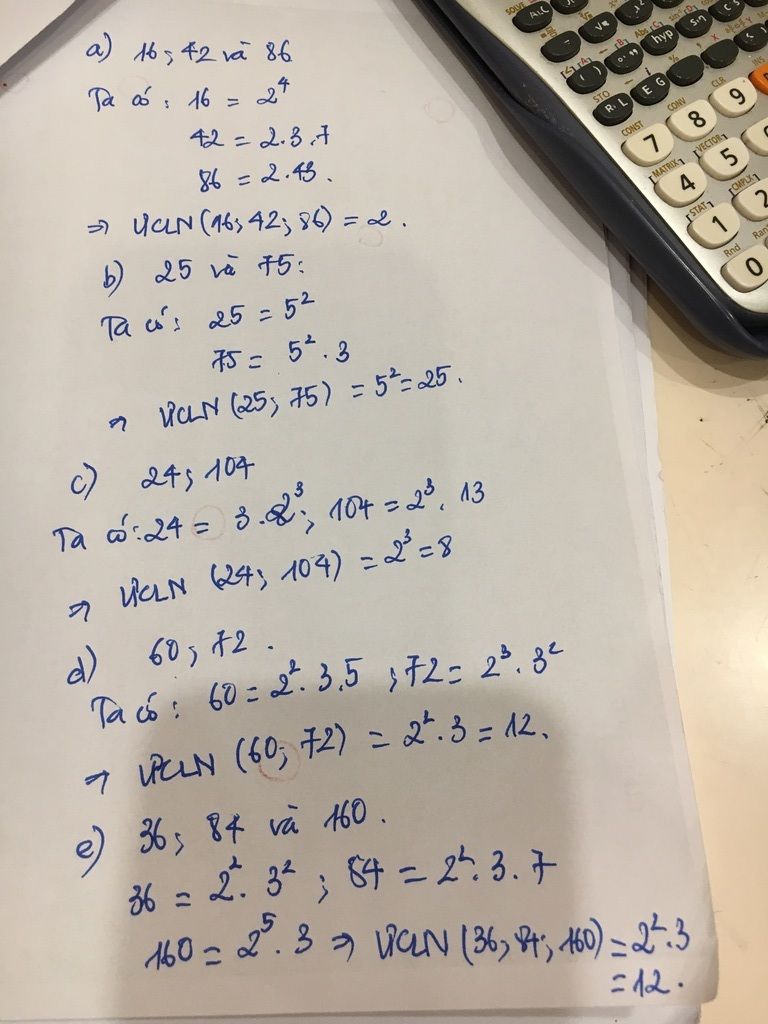 a) 16; 42 và 86
Ta có: 16 = 2⁴
42 = 2.3.7
86 = 2.43.
⇒ ƯCLN(16; 42; 86) = 2.
b) 25 và 75:
Ta có: 25 = 5²
75 = 5² . 3
⇒ ƯCLN (25; 75) = 5² = 25.
c) 24; 104
Ta có: 24 = 3.2³; 104 = 2³. 13
⇒ ƯCLN (24; 104) = 2³ = 8
d) 60; 72.
Ta có: 60 = 2².3.5 ; 72 = 2³. 3²
⇒ ƯCLN (60; 72) = 2².3 = 12.
e) 36; 84 và 160.
36 = 2². 3² ; 84 = 2². 3. 7
160 = 2⁵. 3 ⇒ ƯCLN (36; 84; 160) = 2².3
= 12.
SOLVE
hyp
sin
Abs
STO
RCL
ENG
CONST
CONV
CLR
7
8
9
MATRIX
VECTOR
4
5
STAT
CMPLX
1
2
Rnd
0